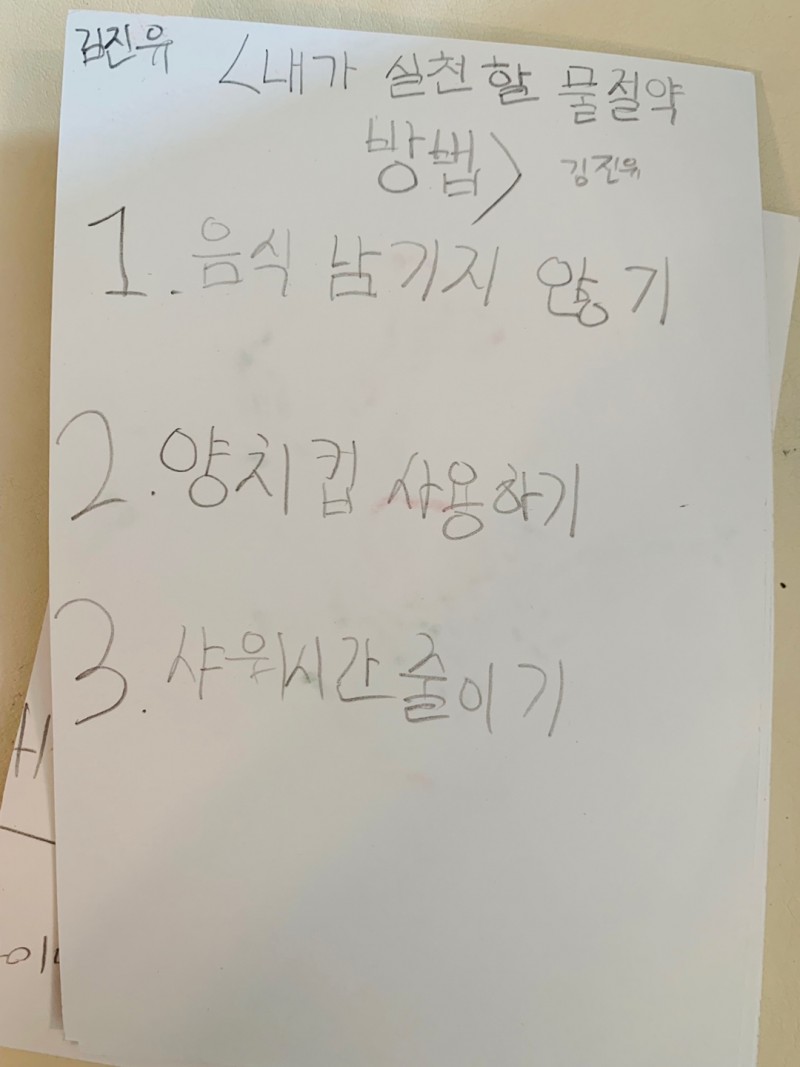 김진유 <내가 실천할 물절약
방법> 김진유
1. 음식 남기지 않기
2. 양치컵 사용하기
3. 샤워시간 줄이기